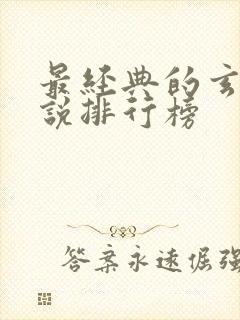 最經典的玄
說排行榜
答案永遠倔强